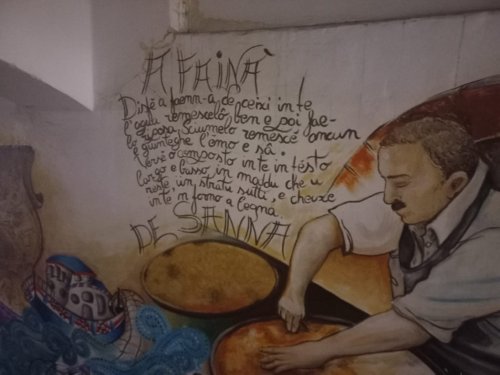 A FAINÀ
Distê a faenn-a de ceixi inte
l'aegua remescelö ben e poi fae-
la posâ. Sciumelo, romescê ancun
e giunteghe l'êmo e sâ.
Versê o composto inte in testo
largo e basso, in moddu che u
reste un stratu sutti, e cheuxe
inte 'n forno a legna.
DE SANNA